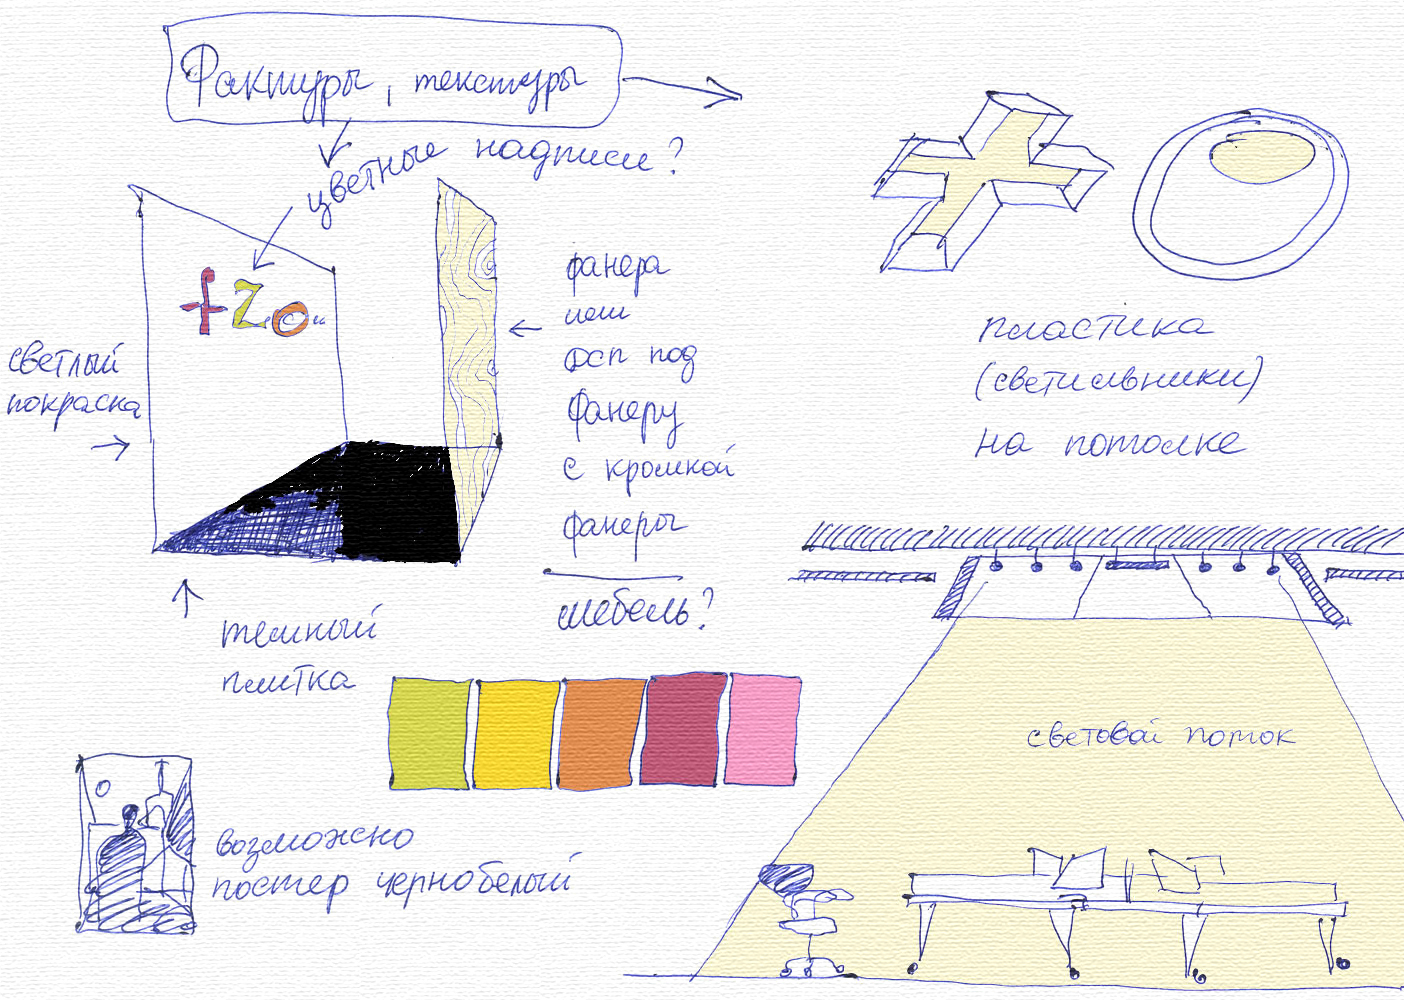 Фактуры, текстуры
цветные надписи?
fzo
светлый
покраска
фанера
или
дсп под
фанеру
с кромкой
фанеры
мебель?
темный
плитка
возможно
постер чернобелый
пластика
(светильники)
на потолке
световой поток